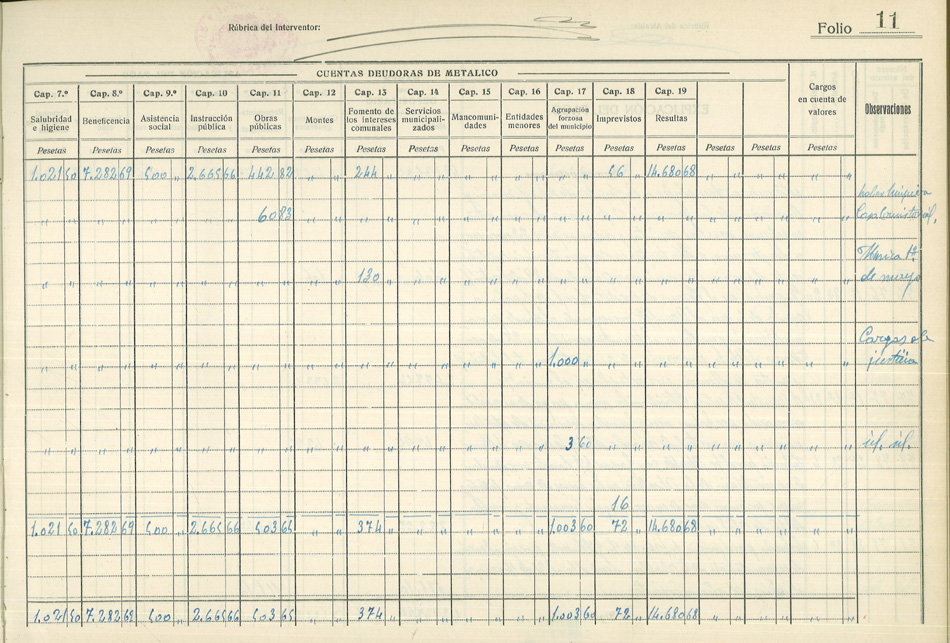 Rúbrica del Interventor:
Folio 11
CUENTAS DEUDORAS DE METALICO
Cap. 7.º Cap. 8.º Cap. 9.º Cap. 10 Cap. 11 Cap. 12 Cap. 13 Cap. 14 Cap. 15 Cap. 16 Cap. 17 Cap. 18 Cap. 19
Salubridad e higiene
Beneficencia
Asistencia social
Instrucción pública
Obras públicas
Montes
Fomento de los intereses comunales
Servicios municipali-zados
Mancomuni-dades
Entidades menores
Agrupación forzosa del municipio
Imprevistos
Resultas
Cargos en cuenta de valores
Observaciones
Pesetas Pesetas Pesetas Pesetas Pesetas Pesetas Pesetas Pesetas Pesetas Pesetas Pesetas Pesetas Pesetas Pesetas Pesetas Pesetas
1.021 50 7.282 69 500 " 2.665 66 442 82 " " 244 " " " " " " " " " 56 " 14.680 68 " " " " " "
" " " " " " " " 60 83 " " " " " " " " " " " " " " " " " " " " " "
" " " " " " " " " " " " 130 " " " " " " " " " " " " " " " " " " "
Musica 1º
de mayo
" " " " " " " " " " " " " " " " " " " " 1.000 " " " " " " " " " " "
Cargas de
justicia
" " " " " " " " " " " " " " " " " " " " 3 60 " " " " " " " " " "
id. id.
16
1.021 50 7.282 69 500 " 2.665 66 503 65 " " 374 " " " " " " " 1.003 60 72 " 14.680 68 " " " " " "
1.021 50 7.282 69 500 " 2.665 66 503 65 " " 374 " " " " " " " 1.003 60 72 " 14.680 68 " " " " " "